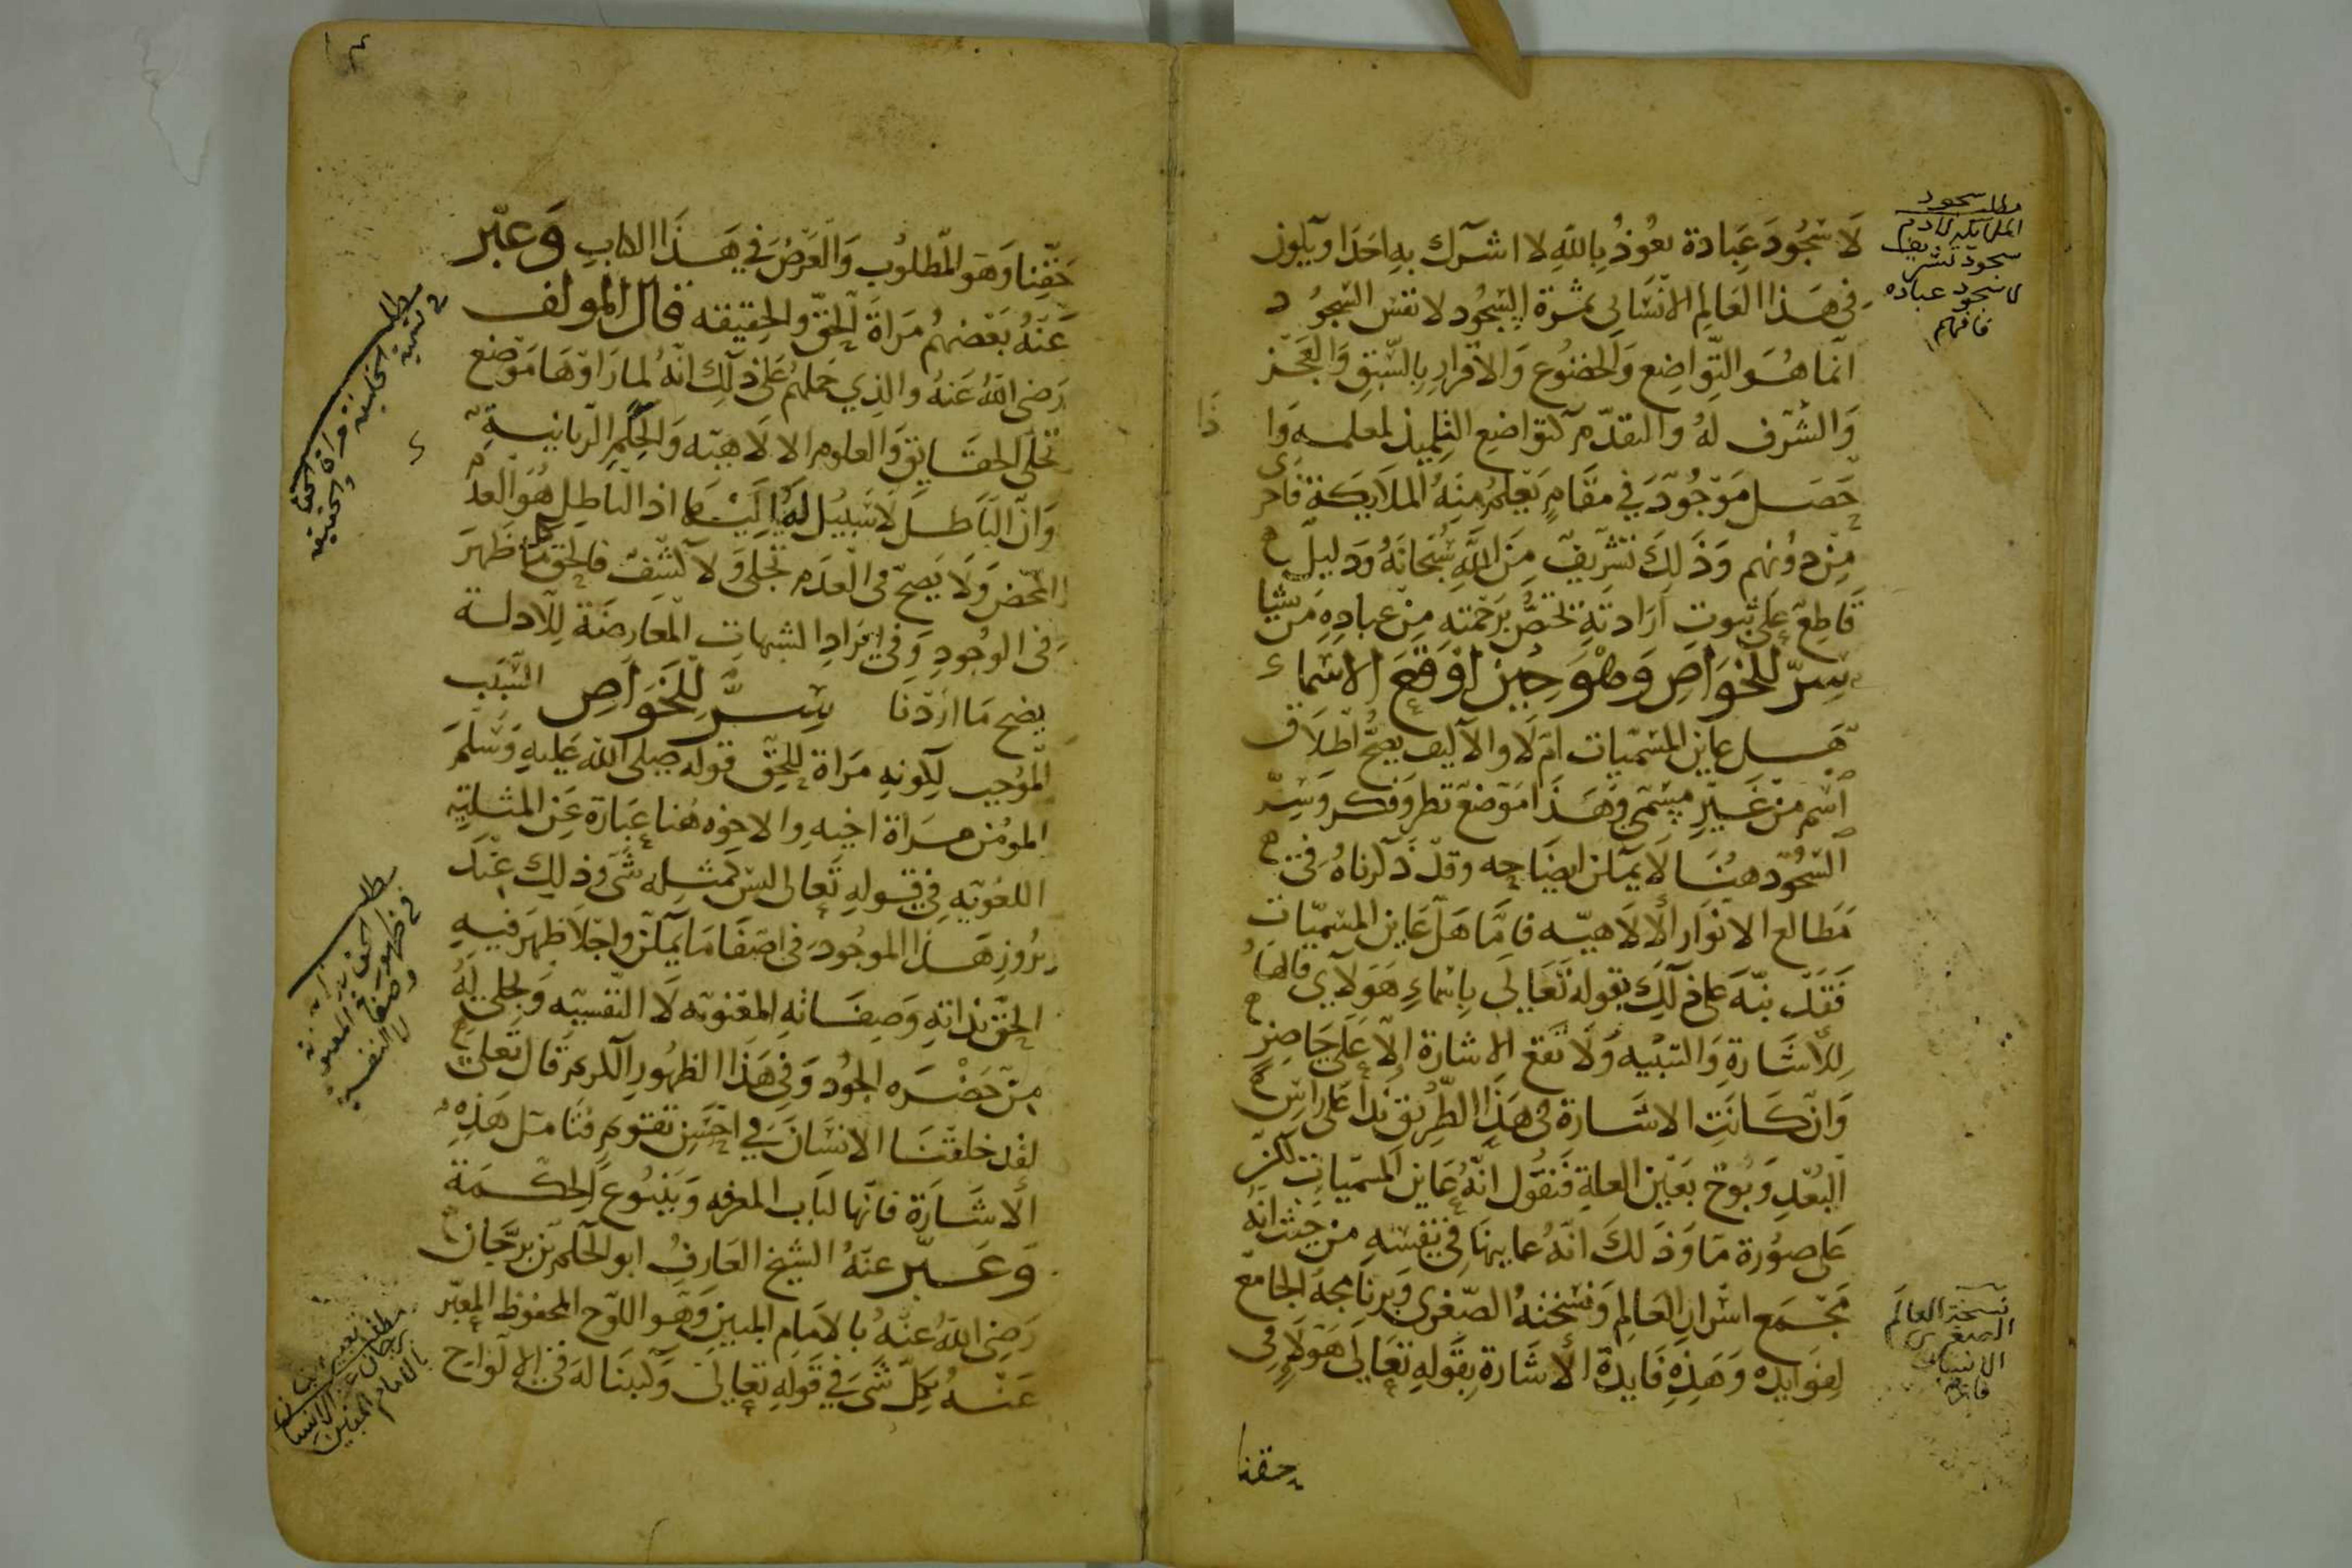 لا سجود عبادة نعوذ بالله لا اشرك به احدا ويكون
في هذا العالم الانساني ثمرة السجود لا نفس السجود
انما هو التواضع والخضوع والاقرار بالسبق والعجز
والشرف له والتقدم كتواضع التلميذ لمعلمه واذا
حصل موجود في مقام يتعلم منه الملايكة فاحرى
من دونهم وذلك تشريف من الله سبحانه ودليل
قاطع على ثبوت ارادته يختص برحمته من عباده من يشا
سر للخواص وهو حين اوقع الاسماء
هل عاين المسميات ام لا والا كيف يصح اطلاق
اسم من غير مسمى وهذا موضع نظر وفكر وسر
السجود هنا لا يمكن ايضاحه وقد ذكرناه في
مطالع الانوار الالاهيه فاما هل عاين المسميات
فقد نبه على ذلك بقوله تعالى باسماء هولاي فالها
للاشارة والتنبيه ولا تقع الاشارة الا على حاضر
وان كانت الاشارة في هذا الطريق ندا على راس
البعد وبوح بعين العلة فنقول انه عاين المسميات لكن
على صورة ما وذلك انه عاينها في نفسه من حيث انه
مجمع اسرار العالم ونسخته الصغرى وبرنامجه الجامع
لفوايده وهذه فايدة الاشارة بقوله تعالى هولا في
حقنا
مطلب سجود
الملايكه لادم
سجود تشريف
لا سجود عباده
فافهم
نسخة العالم
الصغرى
الانسان
حقنا وهو المطلوب والغرض في هذا الكتاب وعبر
عنه بعضهم مراة الحق والحقيقه قال المولف
رضي الله عنه والذي حملهم على ذلك انه لما راوها موضع
تجلى الحقايق والعلوم الالاهيه والحكم الربانية
وان الباطل لا سبيل له اليها اذ الباطل هو العدم
المحض ولا يصح في العدم تجلى ولا كشف فالحق كلما ظهر
في الوجود وفي ايراد الشبهات المعارضة للادلة
يضح ما اردنا سر للخواص السبب
الموجب لكونه مراة للحق قوله صلى الله عليه وسلم
المومن مراة اخيه والاخوه هنا عبارة عن المثلية
اللغويه في قوله تعالى ليس كمثله شي وذلك عند
بروز هذا الموجود في اصفا ما يمكن واجلا ظهر فيه
الحق بذاته وصفاته المعنويه لا النفسيه وتجلى له
من حضره الجود وفي هذا الظهور الكريم قال تعلى
لقد خلقنا الانسان في احسن تقويم فتامل هذه
الاشارة فانها لباب المعرفه وينبوع الحكمة
وعبر عنه الشيخ العارف ابو الحكم بن برجان
رضي الله عنه بالامام المبين وهو اللوح المحفوظ المعبر
عنه بكل شي في قوله تعالى وكتبنا له في الالواح
مطلب
في تسمية
الخليفه مراة الحق
والحقيقه
مطلب
في ظهور الحق بذاته
وصفاته المعنويه
لا النفسيه
مطلب تعبير ابن
برجان عن الانسان
بالامام المبين